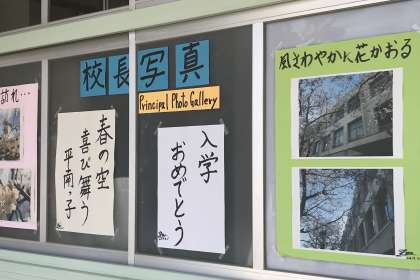 訪れ…
校長写真
Principal Photo Gallery
春の空
喜び舞う
平南っ子
入学
おめでとう
風さわやかに花かおる